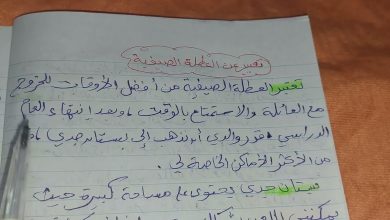 تعبير عن العطلة الصيفية
تعتبر العطلة الصيفية من أفضل الأوقات للخروج
مع العائلة والاستمتاع بالوقت، وبعد انتهاء العام
الدراسي، قرر والدي أن نذهب إلى بستان جدي،
من الأكثر الأماكن الخاصة لي.
بستان جدي يحتوي على مساحة كبيرة حيث
يمكنني اللعب